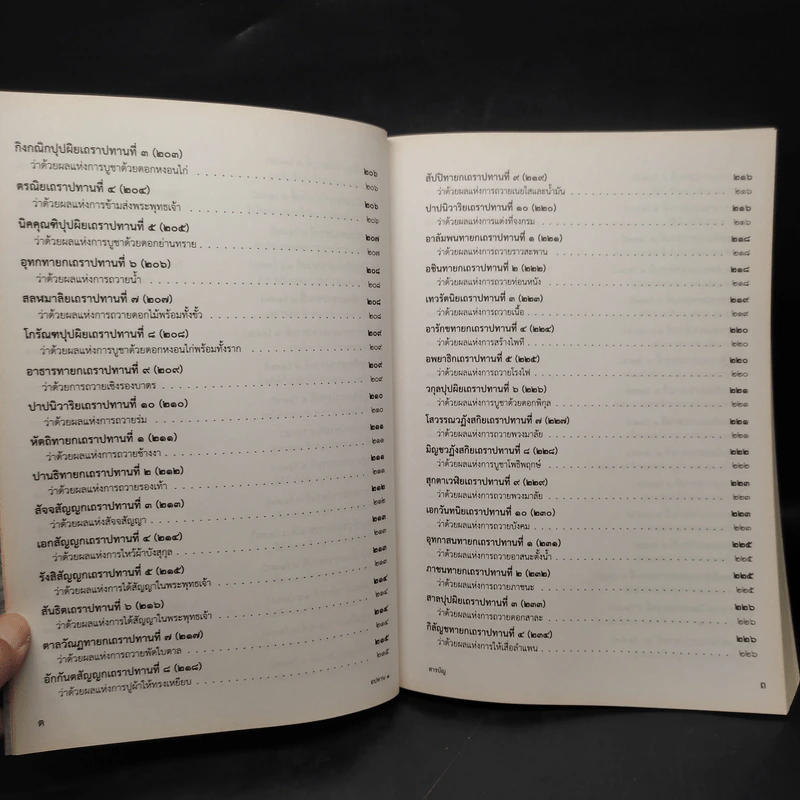 กิงกณิกปุปผิยเถราปทานที่ ๓ (๒๐๓) ๒๐๖
ว่าด้วยผลแห่งการบูชาด้วยดอกหงอนไก่ ๒๐๖
ตรณิยเถราปทานที่ ๔ (๒๐๔) ๒๐๖
ว่าด้วยผลแห่งการข้ามส่งพระพุทธเจ้า ๒๐๖
นิคคุณฑิปุปผิยเถราปทานที่ ๕ (๒๐๕) ๒๐๗
ว่าด้วยผลแห่งการบูชาด้วยดอกย่านทราย ๒๐๗
อุทกทายกเถราปทานที่ ๖ (๒๐๖) ๒๐๘
ว่าด้วยผลแห่งการถวายน้ำ ๒๐๘
สลฬมาลิยเถราปทานที่ ๗ (๒๐๗) ๒๐๘
ว่าด้วยผลแห่งการถวายดอกไม้พร้อมทั้งขั้ว ๒๐๘
โกรัณฑปุปผิยเถราปทานที่ ๘ (๒๐๘) ๒๐๙
ว่าด้วยผลแห่งการบูชาด้วยดอกหงอนไก่พร้อมทั้งราก ๒๐๙
อาธารทายกเถราปทานที่ ๙ (๒๐๙) ๒๐๙
ว่าด้วยการถวายเชิงรองบาตร ๒๐๙
ปาปนิวาริยเถราปทานที่ ๑๐ (๒๑๐) ๒๑๐
ว่าด้วยผลแห่งการถวายร่ม ๒๑๐
หัตถิทายกเถราปทานที่ ๑ (๒๑๑) ๒๑๑
ว่าด้วยผลแห่งการถวายช้างงา ๒๑๑
ปานธิทายกเถราปทานที่ ๒ (๒๑๒) ๒๑๑
ว่าด้วยผลแห่งการถวายรองเท้า ๒๑๒
สัจจสัญญกเถราปทานที่ ๓ (๒๑๓) ๒๑๒
ว่าด้วยผลแห่งสัจจสัญญา ๒๑๒
เอกสัญญกเถราปทานที่ ๔ (๒๑๔) ๒๑๓
ว่าด้วยผลแห่งการไหว้ผ้าบังสุกุล ๒๑๓
รังสิสัญญกเถราปทานที่ ๕ (๒๑๕) ๒๑๓
ว่าด้วยผลแห่งการได้สัญญาในพระพุทธเจ้า ๒๑๔
สันธิตเถราปทานที่ ๖ (๒๑๖) ๒๑๔
ว่าด้วยผลแห่งการได้สัญญาในพระพุทธเจ้า ๒๑๔
ตาลวัณฏทายกเถราปทานที่ ๗ (๒๑๗) ๒๑๕
ว่าด้วยผลแห่งการถวายพัดใบตาล ๒๑๕
อักกันตสัญญกเถราปทานที่ ๘ (๒๑๘) ๒๑๕
ว่าด้วยผลแห่งการปูผ้าให้ทรงเหยียบ ๒๑๕
ด
สัปปิทายกเถราปทานที่ ๙ (๒๑๙) ๒๑๖
ว่าด้วยผลแห่งการถวายเนยใสและน้ำมัน ๒๑๖
ปาปนิวาริยเถราปทานที่ ๑๐ (๒๒๐) ๒๑๖
ว่าด้วยผลแห่งการแต่งที่จงกรม ๒๑๖
อาลัมพนทายกเถราปทานที่ ๑ (๒๒๑) ๒๑๘
ว่าด้วยผลแห่งการถวายราวสะพาน ๒๑๘
อชินทายกเถราปทานที่ ๒ (๒๒๒) ๒๑๘
ว่าด้วยผลแห่งการถวายท่อนหนัง ๒๑๘
เทวรัตนิยเถราปทานที่ ๓ (๒๒๓) ๒๑๙
ว่าด้วยผลแห่งการถวายเนื้อ ๒๑๙
อารักขทายกเถราปทานที่ ๔ (๒๒๔) ๒๒๐
ว่าด้วยผลแห่งการสร้างไพที ๒๒๐
อพยาธิกเถราปทานที่ ๕ (๒๒๕) ๒๒๐
ว่าด้วยผลแห่งการถวายโรงไฟ ๒๒๐
วกุลปุปผิยเถราปทานที่ ๖ (๒๒๖) ๒๒๑
ว่าด้วยผลแห่งการบูชาด้วยดอกพิกุล ๒๒๑
โสวรรณวฏังสกิยเถราปทานที่ ๗ (๒๒๗) ๒๒๑
ว่าด้วยผลแห่งการถวายพวงมาลัย ๒๒๑
มิญชวฏังสกิยเถราปทานที่ ๘ (๒๒๘) ๒๒๒
ว่าด้วยผลแห่งการบูชาโพธิพฤกษ์ ๒๒๒
สุกตาเวฬิยเถราปทานที่ ๙ (๒๒๙) ๒๒๓
ว่าด้วยผลแห่งการถวายพวงมาลัย ๒๒๓
เอกวันทนิยเถราปทานที่ ๑๐ (๒๓๐) ๒๒๓
ว่าด้วยผลแห่งการถวายบังคม ๒๒๓
อุทกาสนทายกเถราปทานที่ ๑ (๒๓๑) ๒๒๕
ว่าด้วยผลแห่งการถวายอาสนะตั้งน้ำ ๒๒๕
ภาชนทายกเถราปทานที่ ๒ (๒๓๒) ๒๒๕
ว่าด้วยผลแห่งการถวายภาชนะ ๒๒๕
สาลปุปผิยเถราปทานที่ ๓ (๒๓๓) ๒๒๖
ว่าด้วยผลแห่งการถวายดอกสาละ ๒๒๖
กิลัญชทายกเถราปทานที่ ๔ (๒๓๔) ๒๒๖
ว่าด้วยผลแห่งการให้เสื่อลำแพน ๒๒๖
สารบัญ
ถ